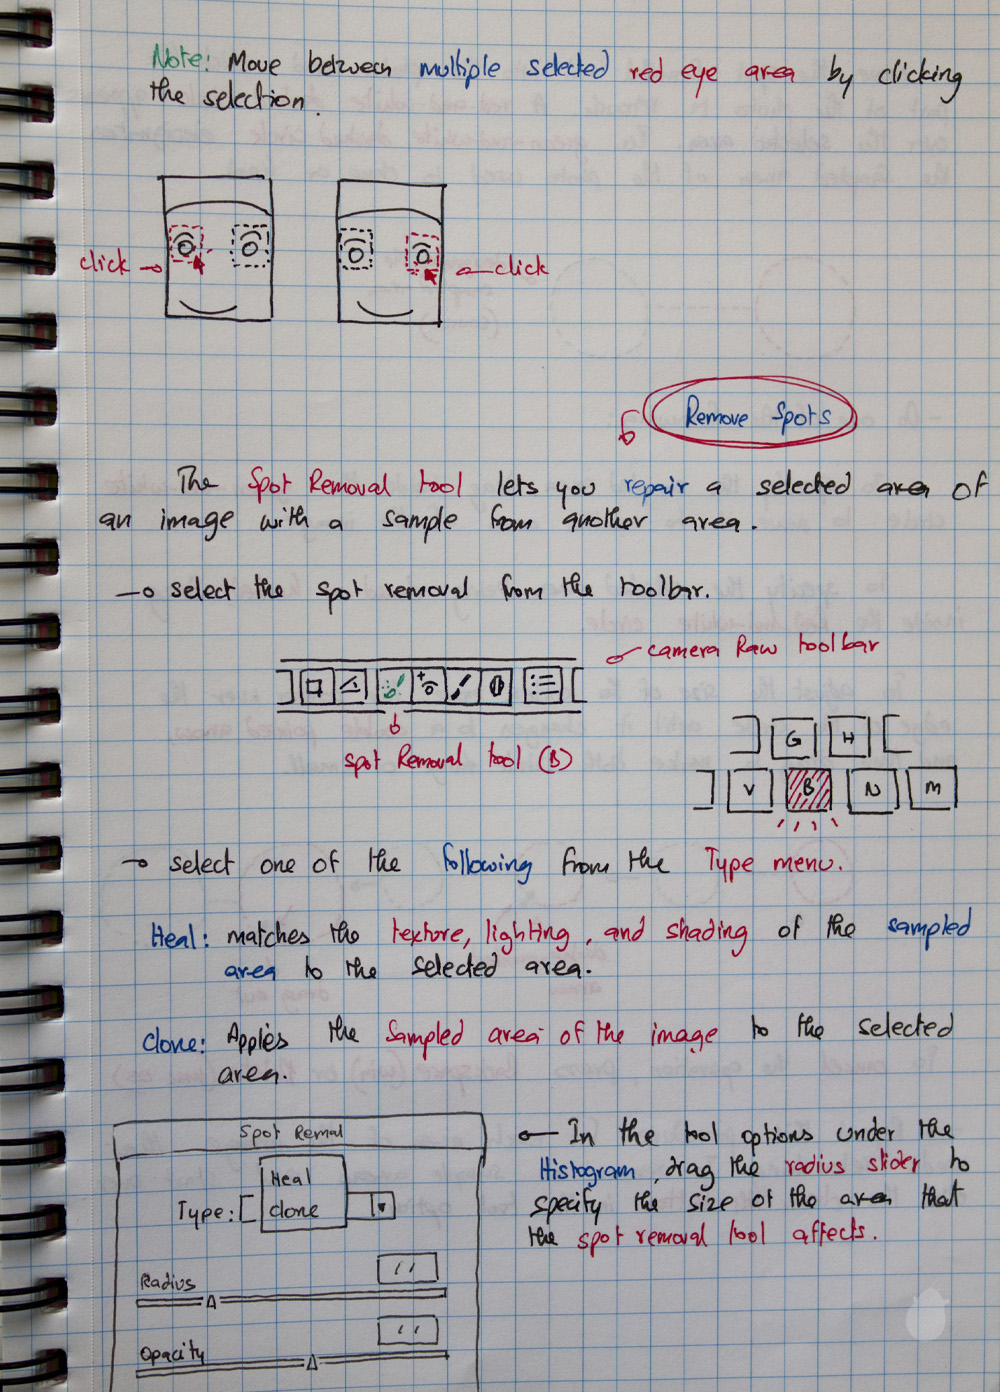 Note: Move between multiple selected red eye area by clicking
the selection.
click
click
Remove Spots
The Spot Removal tool lets you repair a selected area of
an image with a sample from another area.
select the spot removal from the toolbar.
camera Raw toolbar
spot Removal tool (B)
G H
V B N M
select one of the following from the Type menu.
Heal: matches the texture, lighting, and shading of the sampled
area to the selected area.
Clone: Apples the Sampled area of the image to the selected
area.
Spot Remal
Heal
Type: clone
Radius
Opacity
In the tool options under the
Histogram, drag the radius slider to
specify the size of the area that
the spot removal tool affects.